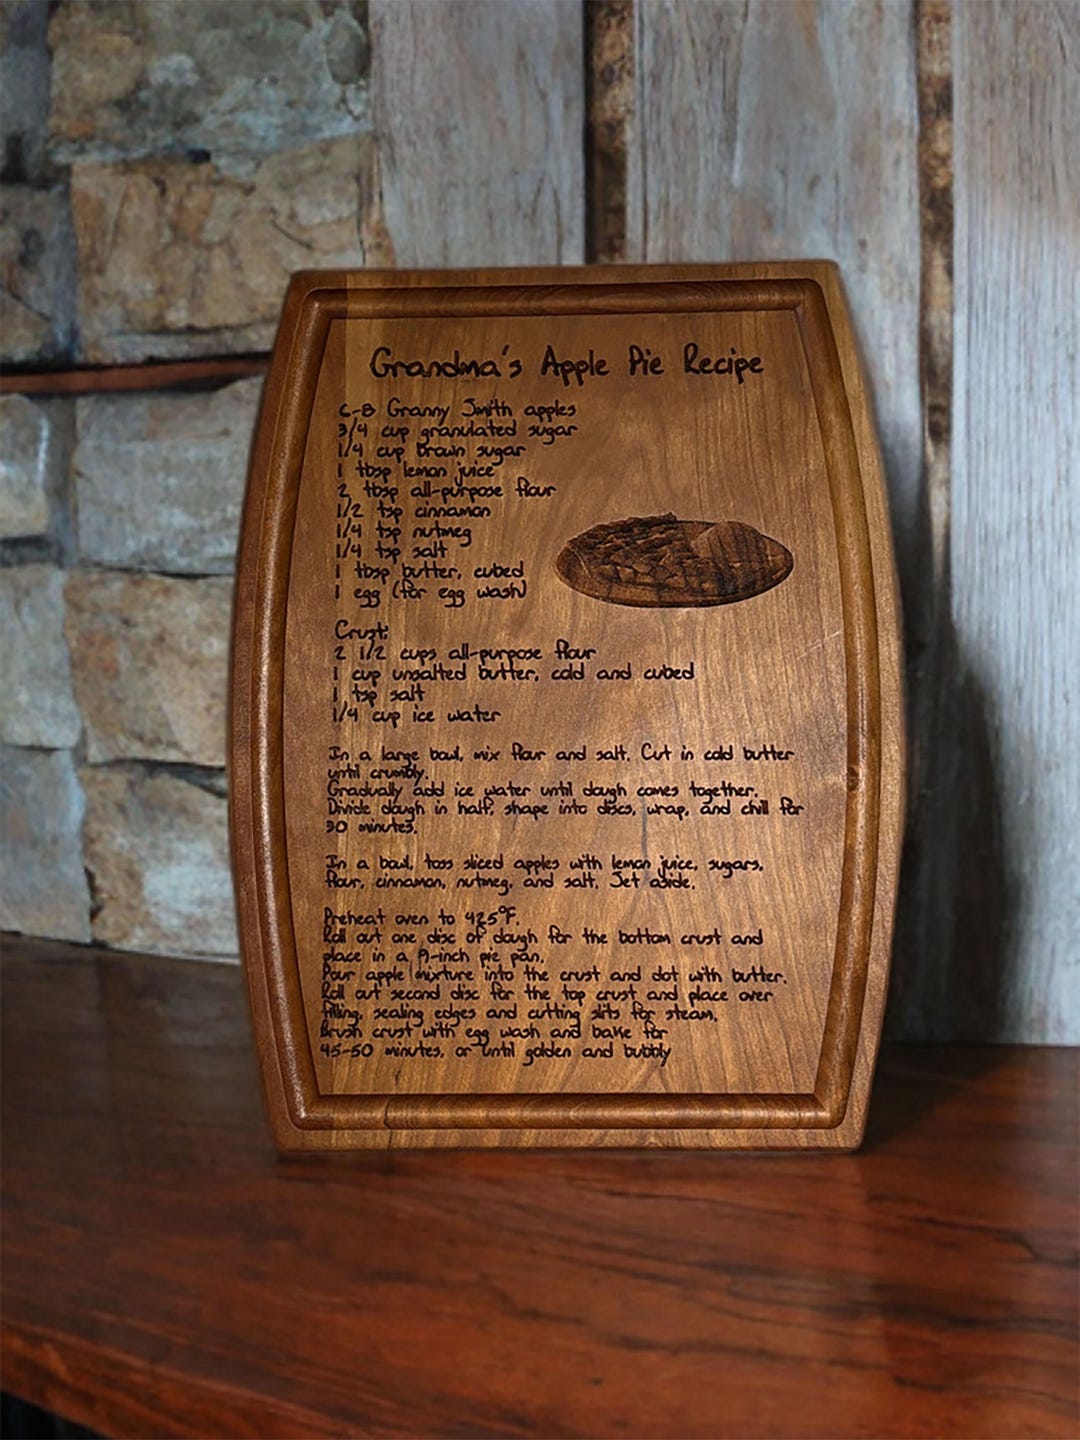 Grandma's Apple Pie Recipe
6-8 Granny Smith apples
3/4 cup granulated sugar
1/4 cup brown sugar
1 tbsp lemon juice
2 tbsp all-purpose flour
1/2 tsp cinnamon
1/4 tsp nutmeg
1/4 tsp salt
1 tbsp butter, cubed
1 egg (for egg wash)
Crust:
2 1/2 cups all-purpose flour
1 cup unsalted butter, cold and cubed
1 tsp salt
1/4 cup ice water
In a large bowl, mix flour and salt. Cut in cold butter
until crumbly.
Gradually add ice water until dough comes together.
Divide dough in half, shape into discs, wrap, and chill for
30 minutes.
In a bowl, toss sliced apples with lemon juice, sugars,
flour, cinnamon, nutmeg, and salt. Set aside.
Preheat oven to 425°F.
Roll out one disc of dough for the bottom crust and
place in a 9-inch pie pan.
Pour apple mixture into the crust and dot with butter.
Roll out second disc for the top crust and place over
filling, sealing edges and cutting slits for steam.
Brush crust with egg wash and bake for
45-50 minutes, or until golden and bubbly